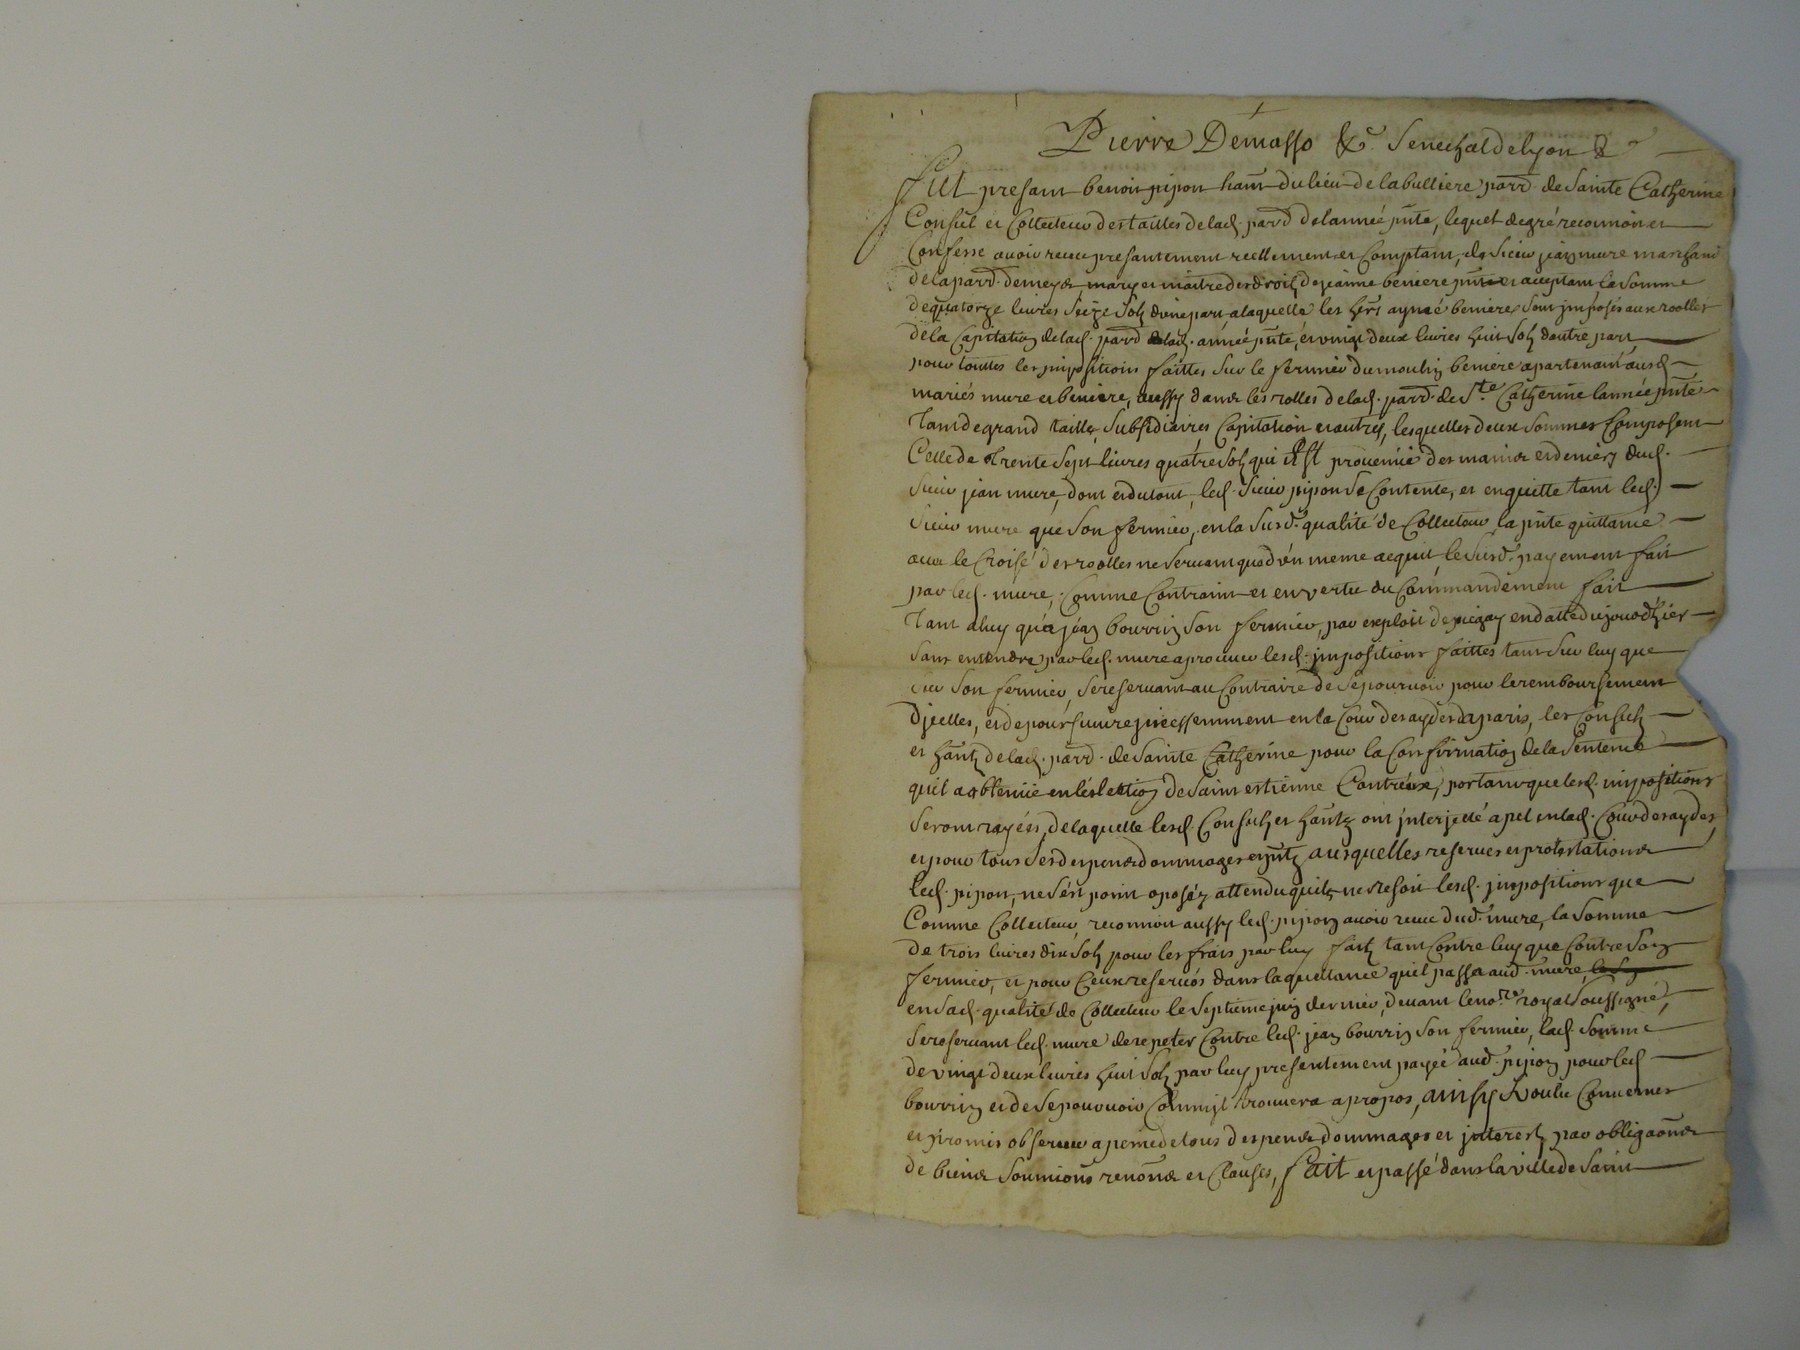 Pierre Démasso &c. Senechal de lyon &c
fut presant benoit pipon hant du lieu de la bulliere parr. de Sainte Catherine
Consul et Collecteur des tailles de lad. parr. de lannée pnte, lequel de gré reconnoit et
Confesse avoir receu presantement reellement et Comptant, de Sieur jean mure marchand
de la parr. de meys, mary et maitre des droitz de jeanne beniere pnte et aceptant la Somme
de quatorze livres Seize Solz d'une part a laquelle les hers aymé beniere Sont jmposés aux roolles
de la Capitation de lad. parr. de lad. année pnte, et vingt deux livres huit Solz dautre part
pour toutes les jmpositions faittes Sur le fermier du moulin beniere apartenant ausd.
mariés mure et beniere, aussy dans les rolles de lad. parr. de Ste Catherine lannée pnte
Tant de grand taille, Subsidiaires Capitation et autres, lesquelles deux Sommes Composent
Celle de Trente Sept livres quatre Solz qui Est provenüe des mains et deniers dud.
Sieur jean mure, dont et du tout, led. Sieur pipon Se Contente, et en quitte tant led.
Sieur mure que Son fermier, en la Susd. qualité de Collecteur la pnte quittance
avec le Croisé des roolles ne Servant que d'un meme acquit, le Susd. payement fait
par led. mure, Comme Contraint et en vertu du Commandement fait
Tant a luy qu'a jean bourrin Son fermier, par exploit de pieżay en datte du jour d'hier
Sans entendre par led. mure aprouver lesd. jmpositions faittes tant Sur luy que
Sur Son fermier, Se reservant au Contraire de Se pourvoir pour le remboursement
d'jcelles, et de poursuivre jncessemment en la Cour des aydes a paris, les Consulz
et hantz de lad. parr. de Sainte Catherine pour la Confirmation de la Sentence
quil a obtenüe en l'election de Saint estienne Contr'eux, portant que lesd. impositions
Seront rayées, de laquelle lesd. Consulz et hantz ont jnterjetté apel en lad. Cour des aydes,
et pour tous Ses despens dommages et jntz ausquelles reserves et protestations
led. pipon, ne S'est point oposéz attendu quil ne resoit lesd. jmpositions que
Comme Collecteur, reconnoit aussy led. pipon avoir receu dud. mure, la Somme
de trois livres dix Solz pour les frais par luy faitz tant Contre luy que Contre Son
fermier, et pour Ceux reservés dans la quittance quil passa aud. mure,
en Sad. qualité de Collecteur le Septieme juin dernier, devant le no.re royal Soussigné,
Se reservant led. mure de repeter Contre led. jean bourrin Son fermier, lad. Somme
de vingt deux livres huit Solz par luy presentement payée aud. pipon pour led.
bourrin et de Se pourvoir Comm'jl trouvera a propos, ainsy Voulu Convenu
et promis observer a peine de tous despens dommages et jnterestz par obligaõns
de biens Soumions renoñs et Clauses, fait et passé dans la ville de Saint